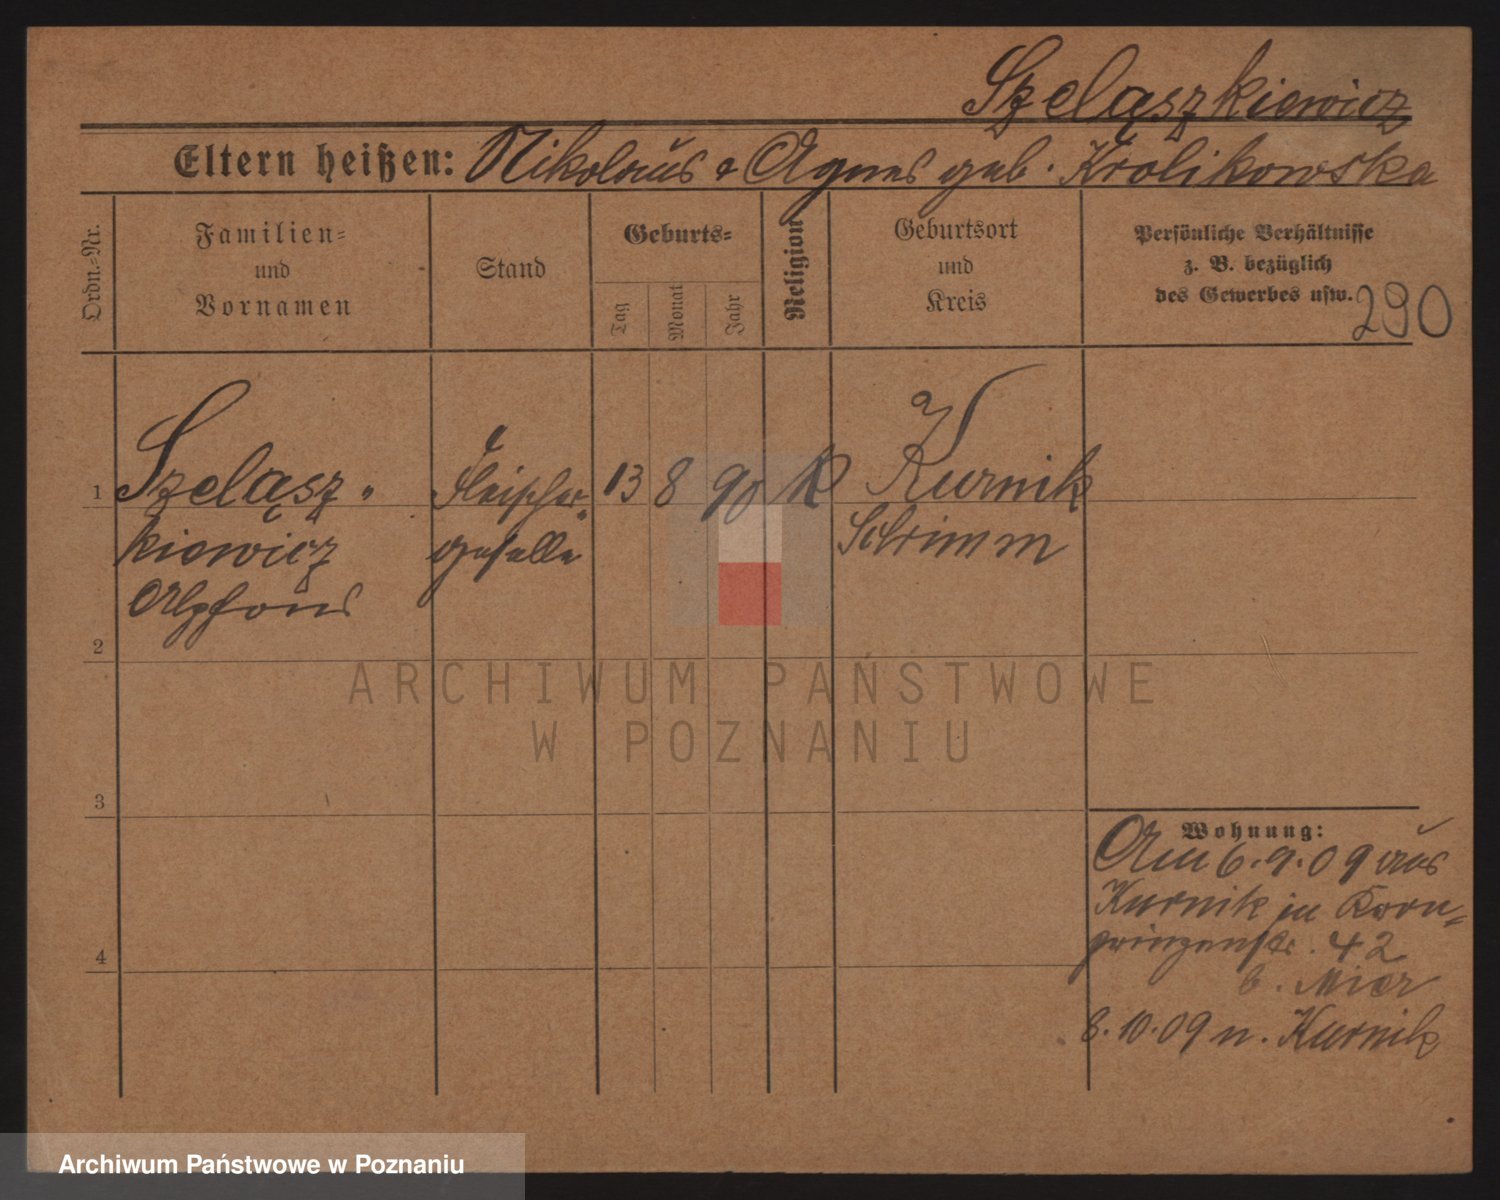 Szeląszkiewicz
Eltern heißen: Nikolaus & Agnes geb. Krolikowska
Ordn.-Nr.
Familien-
und
Vornamen
Stand
Geburts-
Tag
Monat
Jahr
Religion
Geburtsort
und
Kreis
Persönliche Verhältnisse
z. B. bezüglich
des Gewerbes usw.
290
1
Szeląsz-
kiewicz
Alpfons
Fleischer-
geselle
13 8 90 K
Kurnik
Schrimm
2
3
4
Wohnung:
Am 6.9.09 aus
Kurnik in Kron-
prinzenstr. 42
b. Mier
8.10.09 n. Kurnik
ARCHIWUM PAŃSTWOWE
W POZNANIU
Archiwum Państwowe w Poznaniu